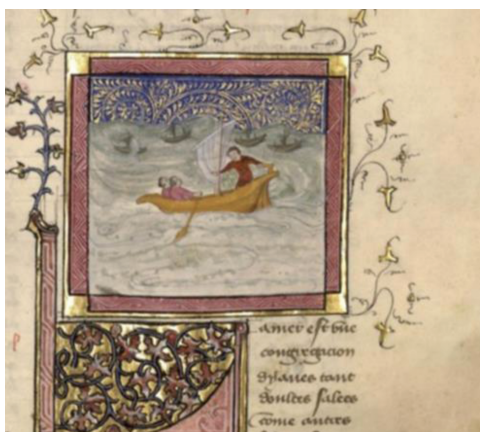 La mer est une
congregacion
d'yaues tant
doulces salees
Come autres